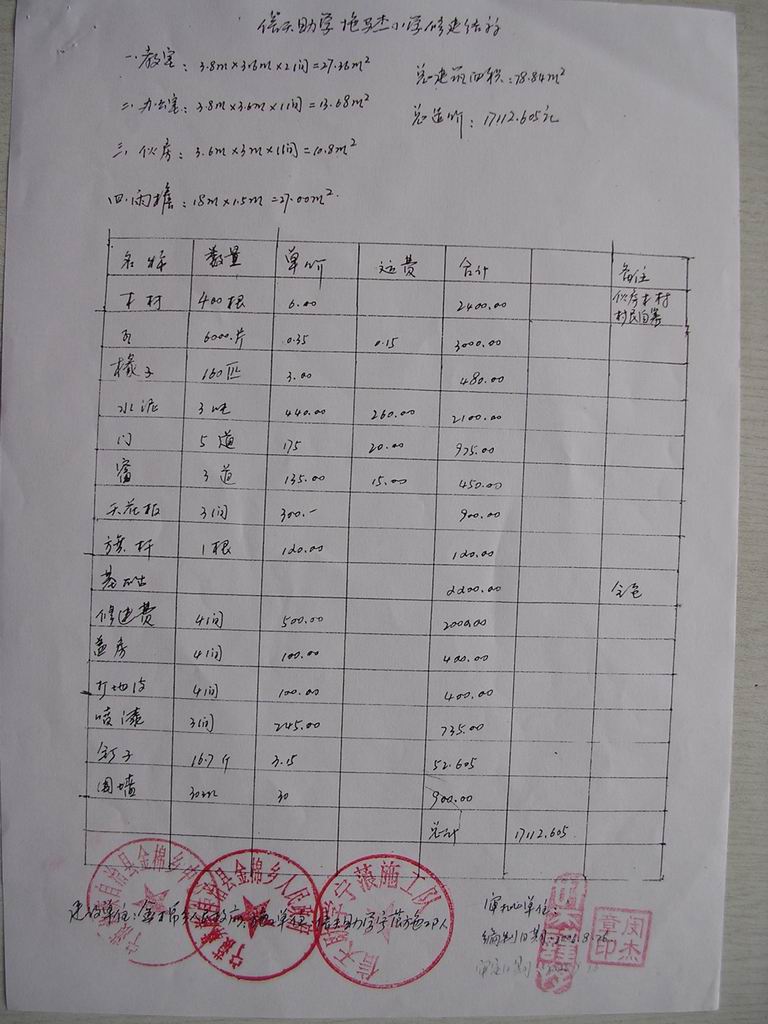 信天助学拖马杰小学修建结算
一.教室: 3.8m×3.6m×2间=27.36m²
总建筑面积:78.84m²
二.办公室: 3.8m×3.6m×1间=13.68m²
总造价: 17112.605元
三.伙房: 3.6m×3m×1间=10.8m²
四.雨檐: 18m×1.5m=27.00m².
名称 数量 单价 运费 合计 备注
木材 400根 6.00 2400.00 伙房木材村民自筹
瓦 6000片 0.35 0.15 3000.00
椽子 160匹 3.00 480.00
水泥 3吨 440.00 260.00 2100.00
门 5道 175 20.00 975.00
窗 3道 135.00 15.00 450.00
天花板 3间 300.- 900.00
旗杆 1根 120.00 120.00
基础 2200.00 全包
修建费 4间 500.00 2000.00
盖房 4间 100.00 400.00
打地皮 4间 100.00 400.00
喷漆 3间 245.00 735.00
钉子 16.7斤 3.15 52.605
围墙 30m 30 900.00
总计 17112.605
建设单位: 金棉乡人民政府 施工单位: 信天助学宁蒗施工队
审批单位:
编制日期: 2005.8.26
审定日期:
自治县金棉乡
宁蒗彝族自治县金棉乡人民政府
信天助学宁蒗施工队
闵杰章印